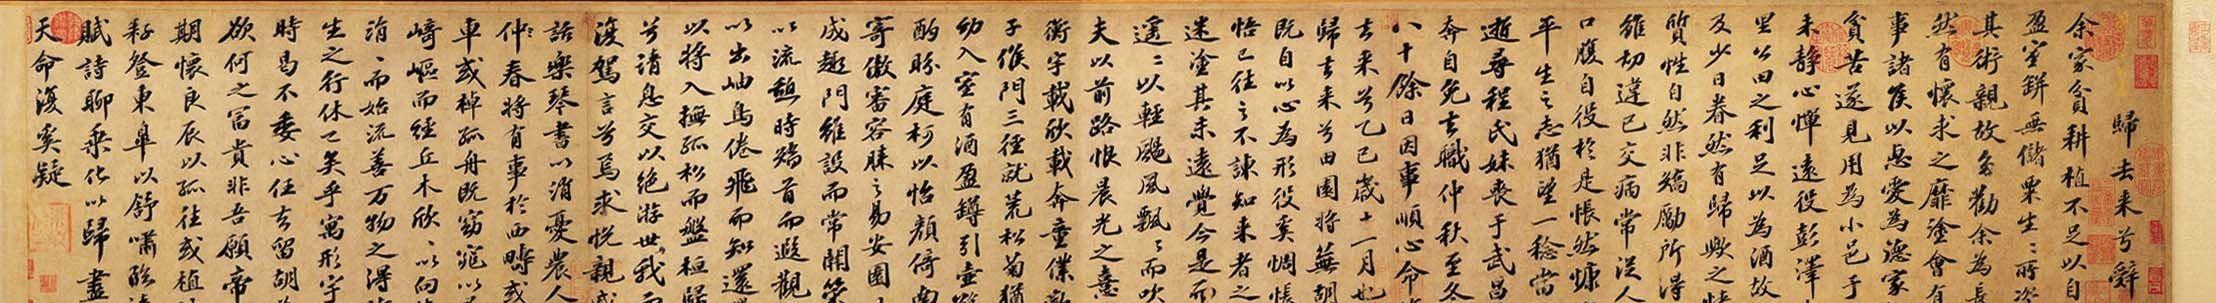 歸去来兮辭
余家貧耕植不足以自
盈室缾無儲粟生〻所資
其術親故多勸余為長
然有懷求之靡塗會有
事諸侯以惠愛為德家
貧苦遂見用為小邑于
未靜心憚遠役彭澤
里公田之利足以為酒故
及少日眷然有歸歟之情
質性自然非矯勵所得
雖切違已交病常從人
口腹自役於是悵然慷
平生之志猶望一稔當
逝尋程氏妹喪于武昌
奔自免去職仲秋至冬
八十餘日因事順心命
去来兮乙巳歲十一月也
歸去来兮田園將蕪胡
既自以心為形役奚惆悵
悟已往之不諫知来者之
迷塗其未遠覺今是而
遙〻以輕颺風飄〻而吹
夫以前路恨晨光之熹
衡宇載欣載奔童僕歡
子候門三徑就荒松菊猶
幼入室有酒盈罇引壺觴
酌眄庭柯以怡顏倚南
寄傲審容膝之易安園
成趣門雖設而常關策
以流憩時矯首而遐觀
以出岫鳥倦飛而知還
以將入撫孤松而盤桓歸
兮請息交以絕游世我而
復駕言兮焉求悅親戚
話樂琴書以消憂農人
仲春將有事於西疇或
車或棹孤舟既窈窕以
崎嶇而經丘木欣〻以向
涓〻而始流善万物之得
生之行休已矣乎寓形宇
時曷不委心任去留胡
欲何之富貴非吾願帝
期懷良辰以孤往或植
耔登東皋以舒嘯臨
賦詩聊乘化以歸盡
天命復奚疑